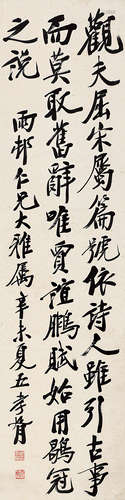 觀夫屈宋屬篇號依詩人雖引古事
而莫取舊辭唯賈誼鵬賦始用鶡冠
之說
雨邨仁兄大雅屬辛未夏五孝胥